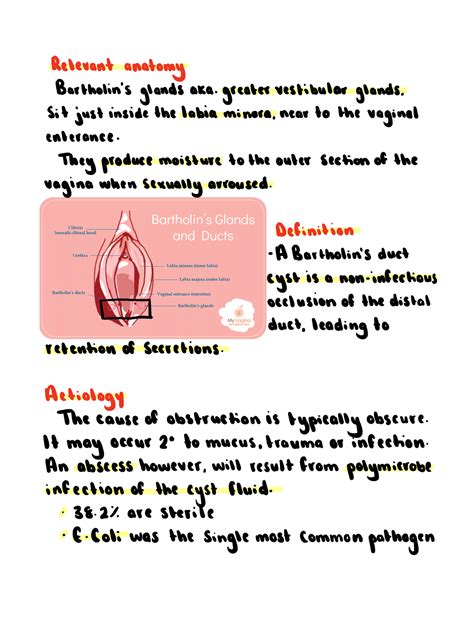 Relevant anatomy
Bartholin's glands aka. greater vestibular glands,
Sit just inside the labia minora, near to the vaginal
enterance.
They produce moisture to the outer section of the
vagina when sexually arroused.
Bartholin's Glands
and Ducts
Clitoris
beneath clitoral hood
Urethra
Labia minora (inner labia)
Labia majora (outer labia)
Bartholin's ducts
Vaginal entrance (introitus)
Bartholin's glands
My Vagina
Definition
- A Bartholin's duct
cyst is a non-infectious
occlusion of the distal
duct, leading to
retention of secretions.
Aetiology
The cause of obstruction is typically obscure.
It may occur 2° to mucus, trauma or infection.
An abscess however, will result from polymicrobe
infection of the cyst fluid.
· 38.2% are sterile
· E.Coli was the single most common pathogen